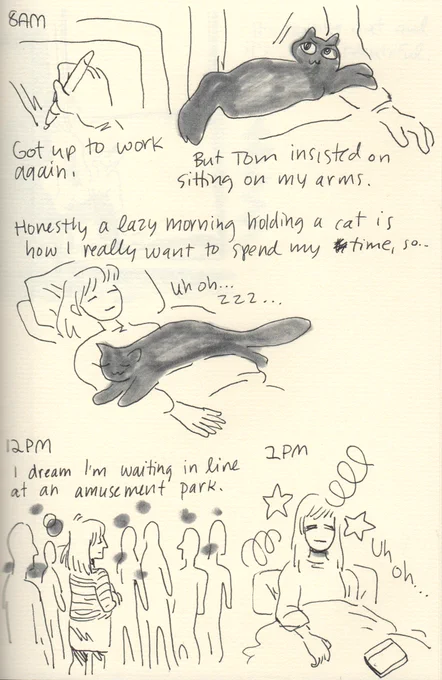 8AM
Got up to work
again.
But Tom insisted on
sitting on my arms.
Honestly a lazy morning holding a cat is
how I really want to spend my time, so..
uh oh...
zzz...
12PM
I dream I'm waiting in line
at an amusement park.
1PM
Uh
oh...